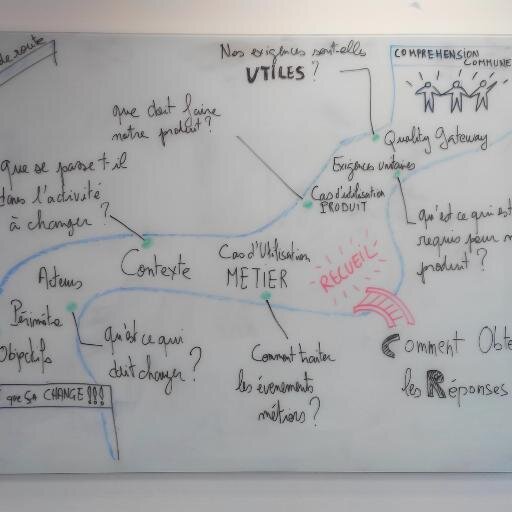 de route
Nos exigences sont-elles
UTILES ?
COMPREHENSION
COMMUNE
que doit faire
notre produit ?
Quality Gateway
Exigences unitaires
que se passe t-il
dans l'activité
à changer ?
Cas d'utilisation
PRODUIT
qu'est ce qui est
requis pour
produit ?
Contexte
Cas d'Utilisation
METIER
RECUEIL
Acteurs
Périmètre
Objectifs
qu'est ce qui
doit changer ?
Comment traiter
les évenements
métiers ?
Comment Obte
les Réponses
que ça CHANGE !!!